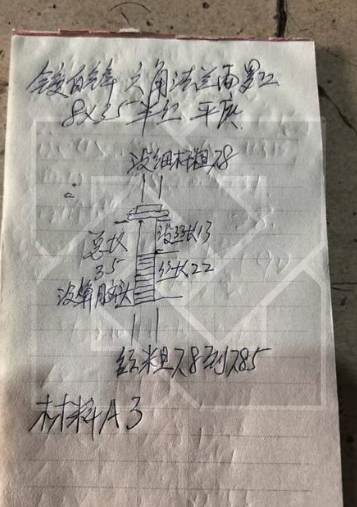 镀白锌 六角法兰面罗丝
8X35半红 平灰
没红细杆粗78
没红长13
总长
35
红长22
没算肩头
红粗78到785
材料A3